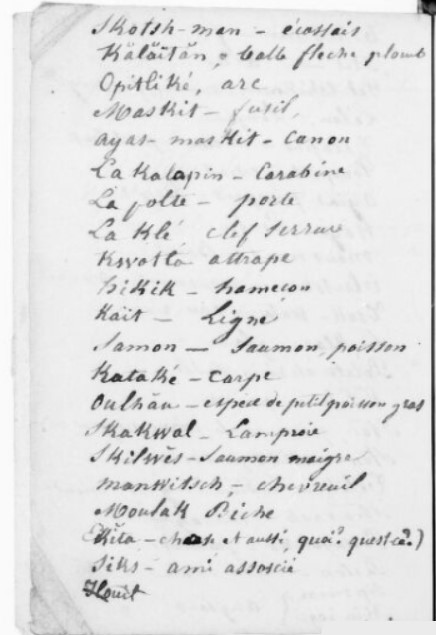 Skotsh-man - écossais
Kălăităn, balle fleche plomb
Opitliké, arc
Maskit - fusil
ayas-maskit - Canon
La Kalapin - Carabine
La polte - porte
La Klé clef serrure
Kwatla attrape
Kait - Ligne
Samon - Saumon, poisson
Kataké - Carpe
Oulhăn - espece de petit poisson gras
Skakwal - Lamproie
Skilwĕs - Saumon maigre
manwitsch, - chevreuil
Moulak Biche
Ikĭta - chose et aussi, quoi? quest ce?)
Siks - ami associé
Houit